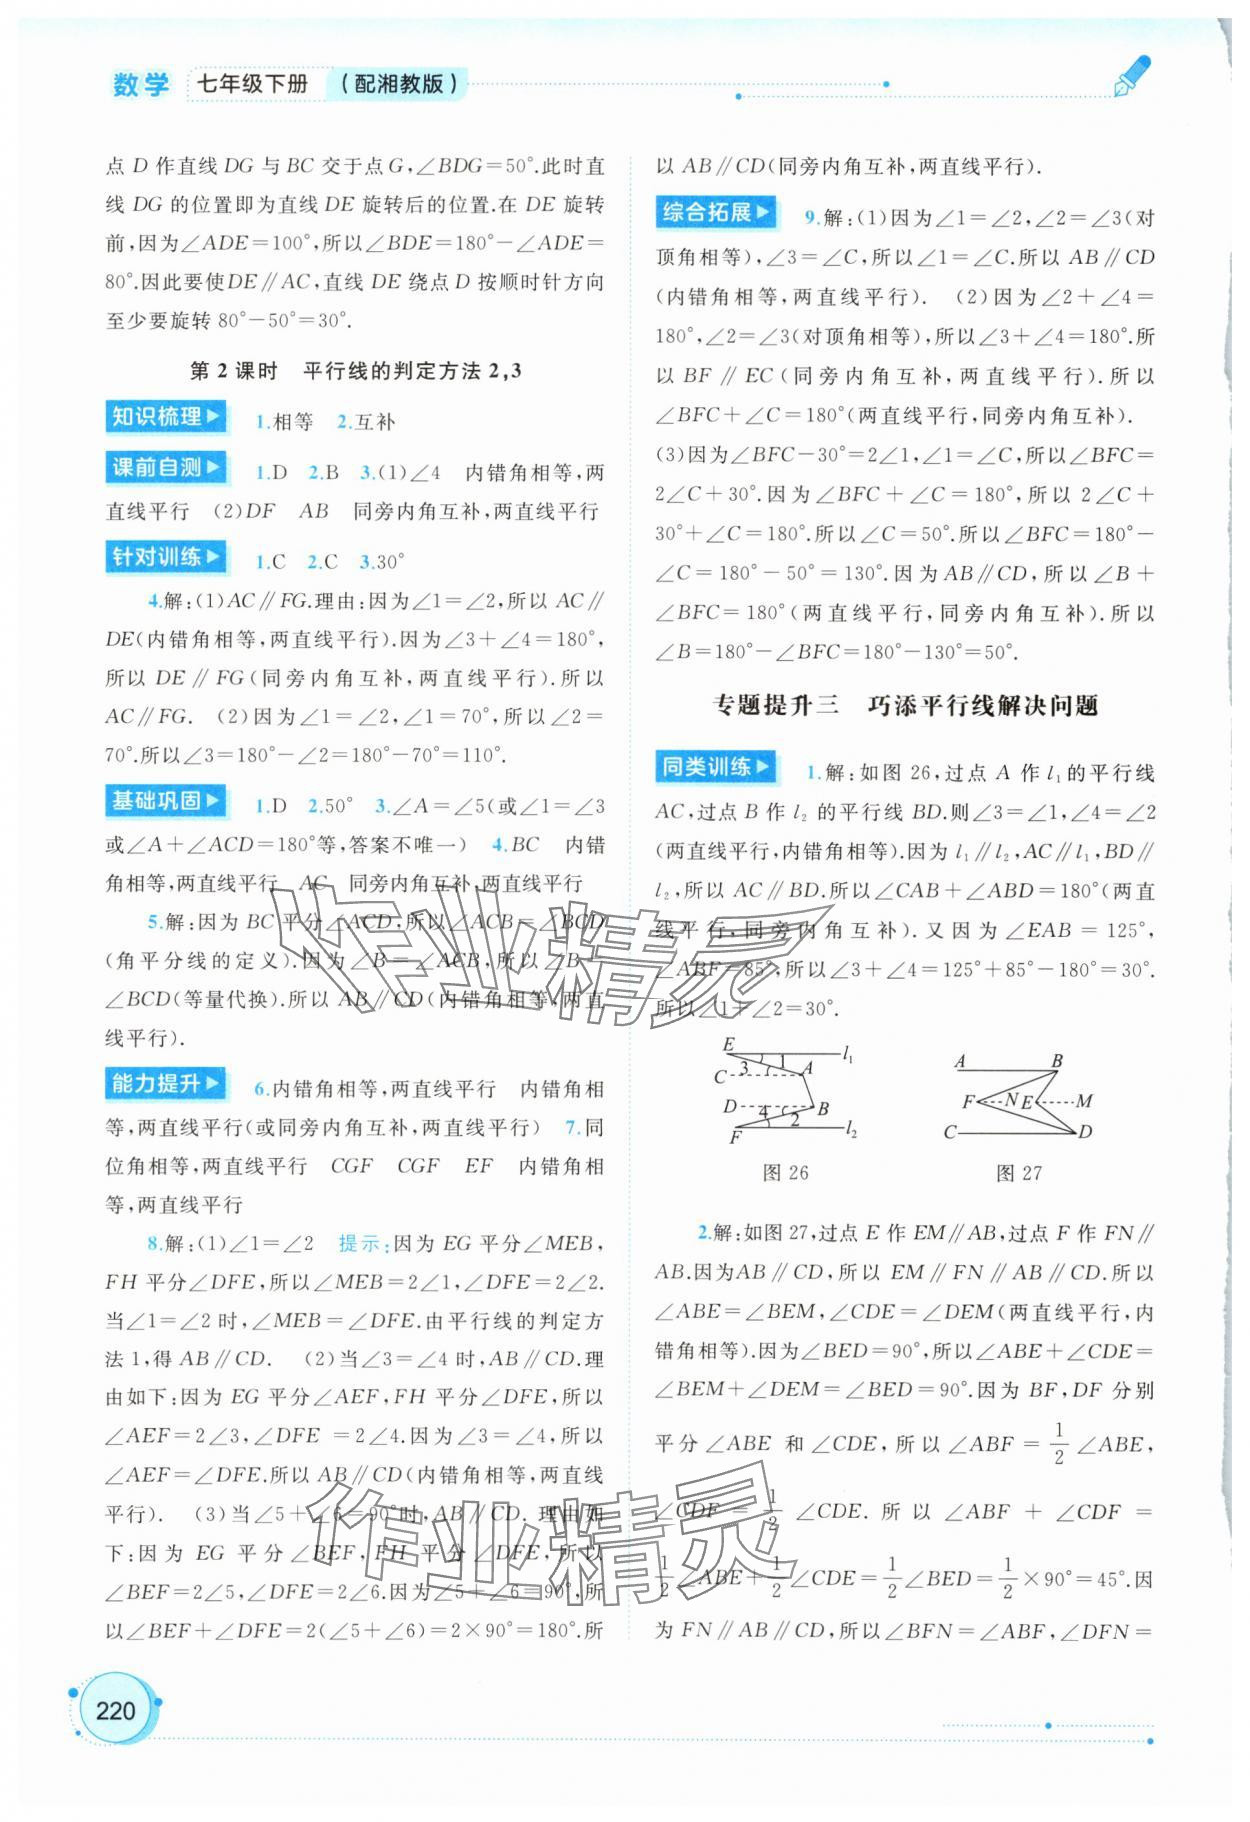 数学 七年级下册 (配湘教版)
点 D 作直线 DG 与 BC 交于点 G,∠BDG=50°.此时直
线 DG 的位置即为直线 DE 旋转后的位置.在 DE 旋转
前,因为∠ADE=100°,所以∠BDE=180°-∠ADE=
80°.因此要使DE∥AC,直线 DE 绕点 D 按顺时针方向
至少要旋转 80°-50°=30°.
第 2 课时 平行线的判定方法 2,3
知识梳理 1.相等 2.互补
课前自测 1.D 2.B 3.(1)∠4 内错角相等,两
直线平行 (2)DF AB 同旁内角互补,两直线平行
针对训练 1.C 2.C 3.30°
4.解:(1)AC∥FG.理由:因为∠1=∠2,所以 AC∥
DE(内错角相等,两直线平行).因为∠3+∠4=180°,
所以 DE∥FG(同旁内角互补,两直线平行).所以
AC∥FG. (2)因为∠1=∠2,∠1=70°,所以∠2=
70°.所以∠3=180°-∠2=180°-70°=110°.
基础巩固 1.D 2.50° 3.∠A=∠5(或∠1=∠3
或∠A+∠ACD=180°等,答案不唯一) 4.BC 内错
角相等,两直线平行 AC 同旁内角互补,两直线平行
5.解:因为 BC 平分∠ACD,所以∠ACB=∠BCD
(角平分线的定义).因为∠B=∠ACB,所以∠B=
∠BCD(等量代换).所以 AB∥CD(内错角相等,两直
线平行).
能力提升 6.内错角相等,两直线平行 内错角相
等,两直线平行(或同旁内角互补,两直线平行) 7.同
位角相等,两直线平行 CGF CGF EF 内错角相
等,两直线平行
8.解:(1)∠1=∠2 提示:因为 EG 平分∠MEB,
FH 平分∠DFE,所以∠MEB=2∠1,∠DFE=2∠2.
当∠1=∠2 时,∠MEB=∠DFE.由平行线的判定方
法 1,得 AB∥CD. (2)当∠3=∠4 时,AB∥CD.理
由如下:因为 EG 平分∠AEF,FH 平分∠DFE,所以
∠AEF=2∠3,∠DFE =2∠4.因为∠3=∠4,所以
∠AEF=∠DFE.所以 AB∥CD(内错角相等,两直线
平行). (3)当∠5+∠6=90°时,AB∥CD. 理由如
下:因为 EG 平分∠BEF,FH 平分∠DFE,所以
∠BEF=2∠5,∠DFE=2∠6.因为∠5+∠6=90°,所
以∠BEF+∠DFE=2(∠5+∠6)=2×90°=180°.所
220
以 AB∥CD(同旁内角互补,两直线平行).
综合拓展 9.解:(1)因为∠1=∠2,∠2=∠3(对
顶角相等),∠3=∠C,所以∠1=∠C.所以 AB∥CD
(内错角相等,两直线平行). (2)因为∠2+∠4=
180°,∠2=∠3(对顶角相等),所以∠3+∠4=180°.所
以 BF∥EC(同旁内角互补,两直线平行).所以
∠BFC+∠C=180°(两直线平行,同旁内角互补).
(3)因为∠BFC-30°=2∠1,∠1=∠C,所以∠BFC=
2∠C+30°.因为∠BFC+∠C=180°,所以 2∠C+
30°+∠C=180°.所以∠C=50°.所以∠BFC=180°-
∠C=180°-50°=130°.因为AB∥CD,所以∠B+
∠BFC=180°(两直线平行,同旁内角互补).所以
∠B=180°-∠BFC=180°-130°=50°.
专题提升三 巧添平行线解决问题
同类训练 1.解:如图 26,过点 A 作 l₁的平行线
AC,过点 B 作 l₂ 的平行线 BD.则∠3=∠1,∠4=∠2
(两直线平行,内错角相等).因为 l₁∥l₂,AC∥l₁,BD∥
l₂,所以 AC∥BD.所以∠CAB+∠ABD=180°(两直
线平行,同旁内角互补).又因为∠EAB=125°,
∠ABF=85°,所以∠3+∠4=125°+85°-180°=30°.
所以∠1+∠2=30°.
E 3 1 l₁ C A D B 4 2 F l₂
图 26
A B F N E M C D
图 27
2.解:如图 27,过点 E 作 EM∥AB,过点 F 作 FN∥
AB.因为AB∥CD,所以 EM∥FN∥AB∥CD.所以
∠ABE=∠BEM,∠CDE=∠DEM(两直线平行,内
错角相等).因为∠BED=90°,所以∠ABE+∠CDE=
∠BEM+∠DEM=∠BED=90°.因为 BF,DF 分别
平分∠ABE 和∠CDE,所以∠ABF=1/2∠ABE,
∠CDF=1/2∠CDE.所以∠ABF+∠CDF=
1/2∠ABE+1/2∠CDE=1/2∠BED=1/2×90°=45°.因
为 FN∥AB∥CD,所以∠BFN=∠ABF,∠DFN=
作业精灵
作业精灵